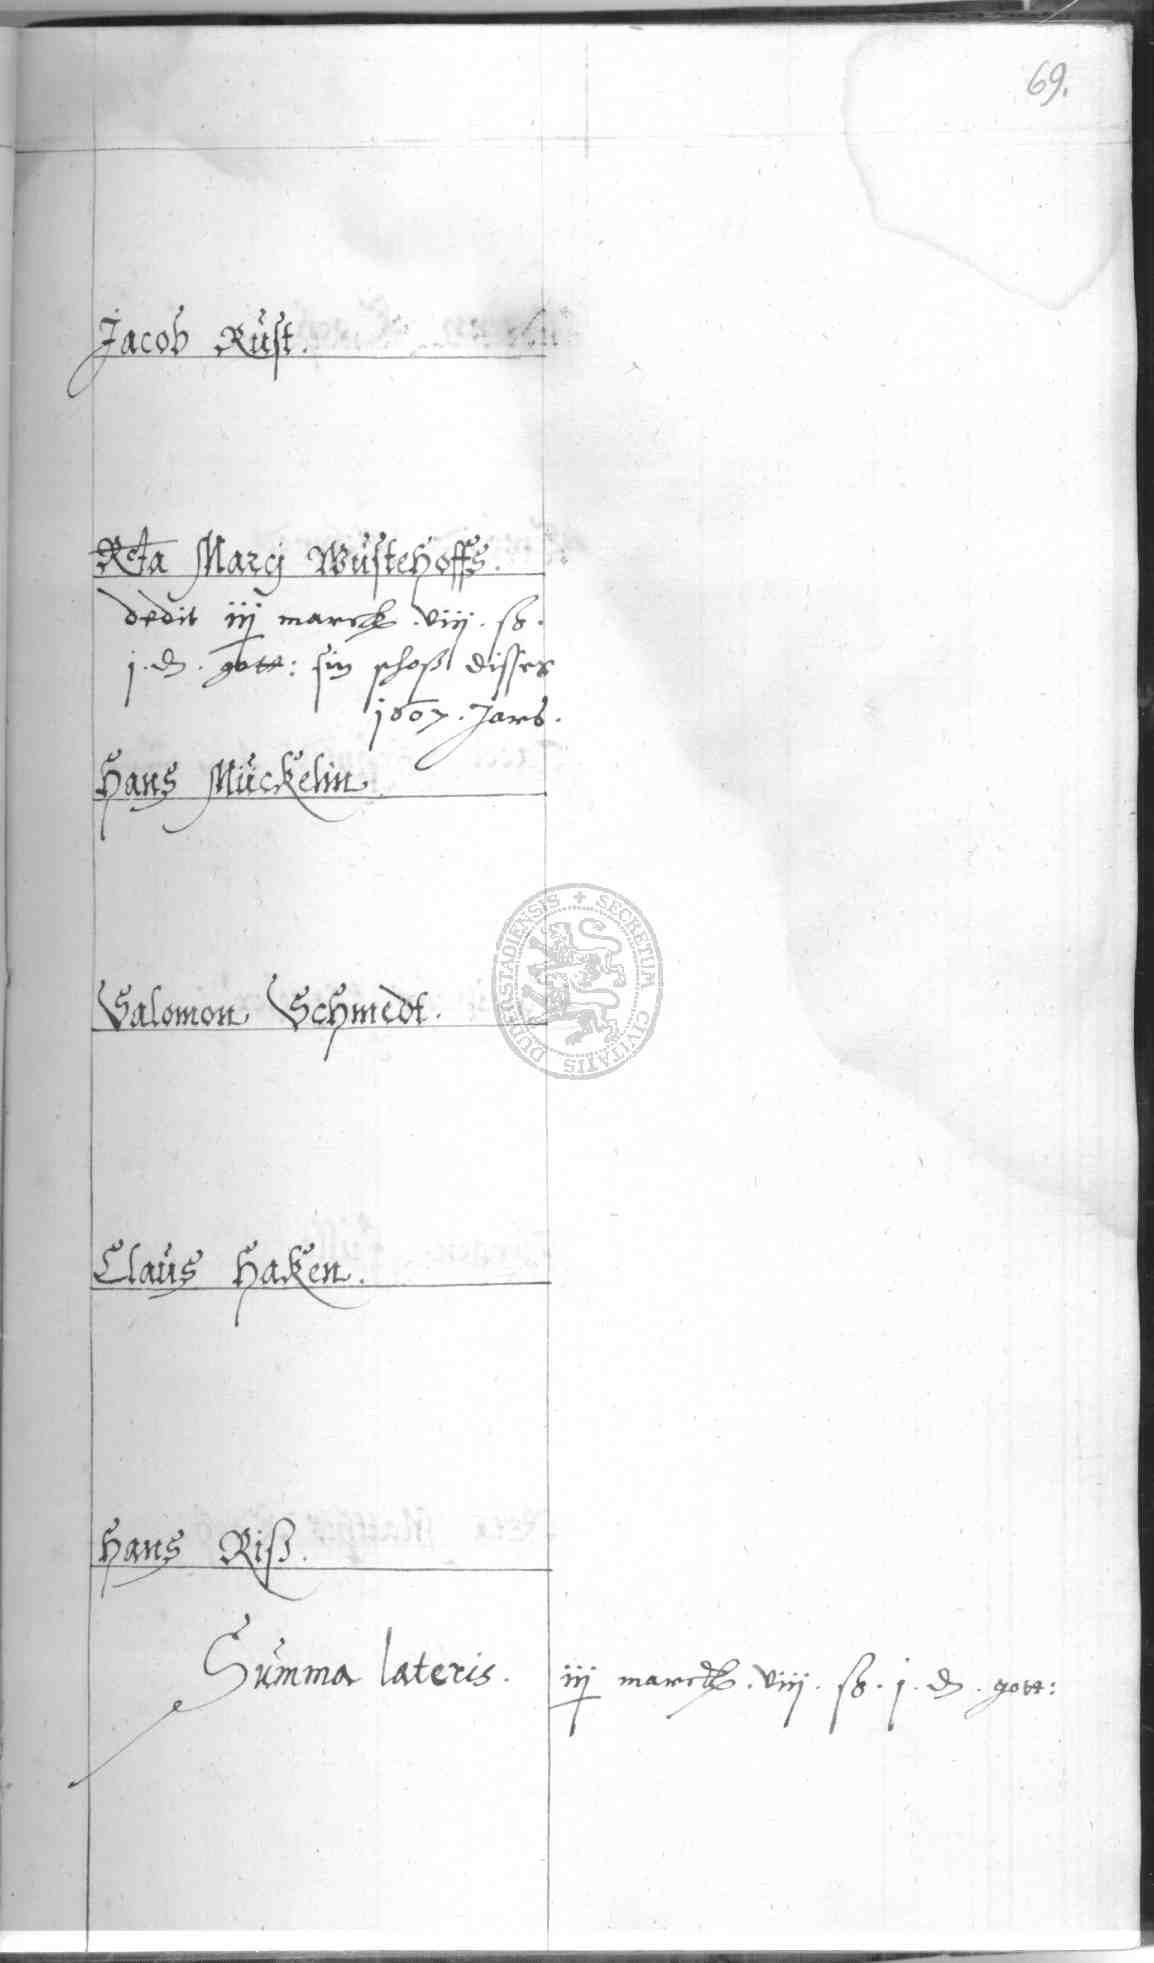 69.
Jacob Rüst.
Rcta Marcj Wüstehoffs.
dedit iij marck. viij. ß.
j. d. gott: sin schoß disses
1607. Jars.
Hans Mückelin.
Salomon Schmedt.
Claus Haken.
Hans Riß.
Summa lateris. iij marck. viij. ß. j. d. gott:
SECRETUM CIVITATIS DUDERSTADIENSIS